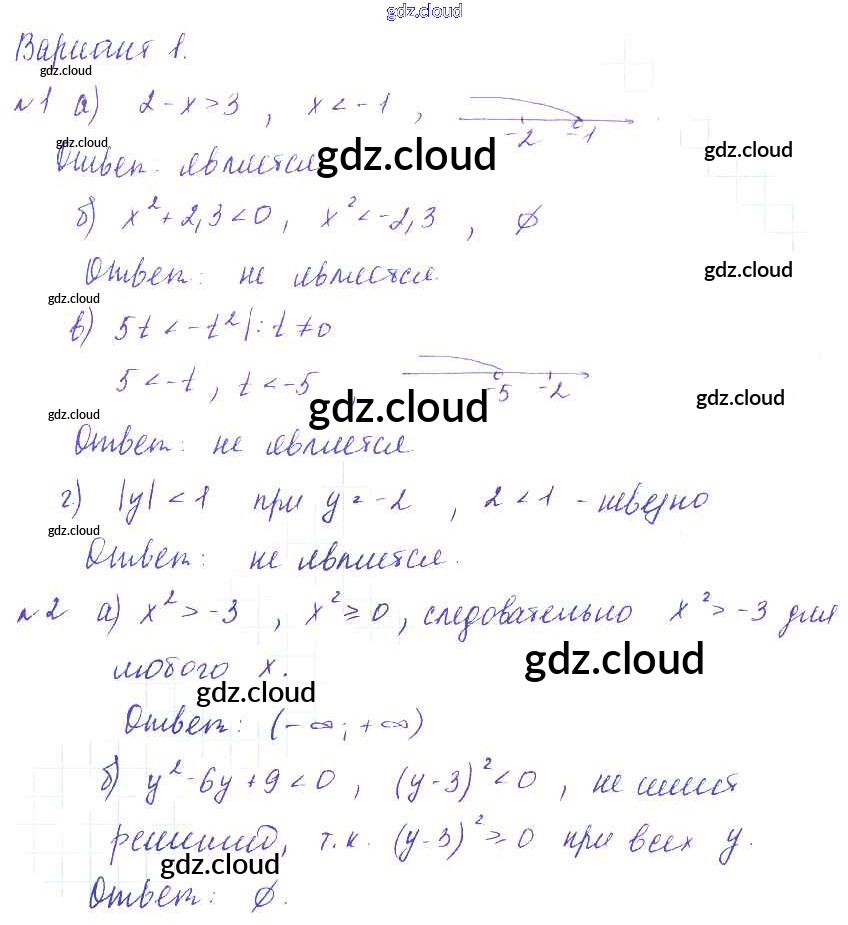 gdz.cloud
Вариант 1.
gdz.cloud
№1 а) 2-x>3, x<-1, -2 -1
gdz.cloud
Ответ: является gdz.cloud gdz.cloud
б) x²+2,3<0, x²<-2,3, ∅
Ответ: не является. gdz.cloud
gdz.cloud
в) 5t<-t² |:t≠0
5<-t, t<-5, -5 -2
gdz.cloud gdz.cloud gdz.cloud
Ответ: не является
г) |y|<1 при y=-2, 2<1 - неверно
gdz.cloud
Ответ: не является.
№2 а) x²>-3, x²≥0, следовательно x²>-3 для
любого x. gdz.cloud
gdz.cloud
Ответ: (-∞;+∞)
б) y²-6y+9<0, (y-3)²<0, не имеет
решений, т.к. (y-3)²≥0 при всех y.
gdz.cloud
Ответ: ∅.